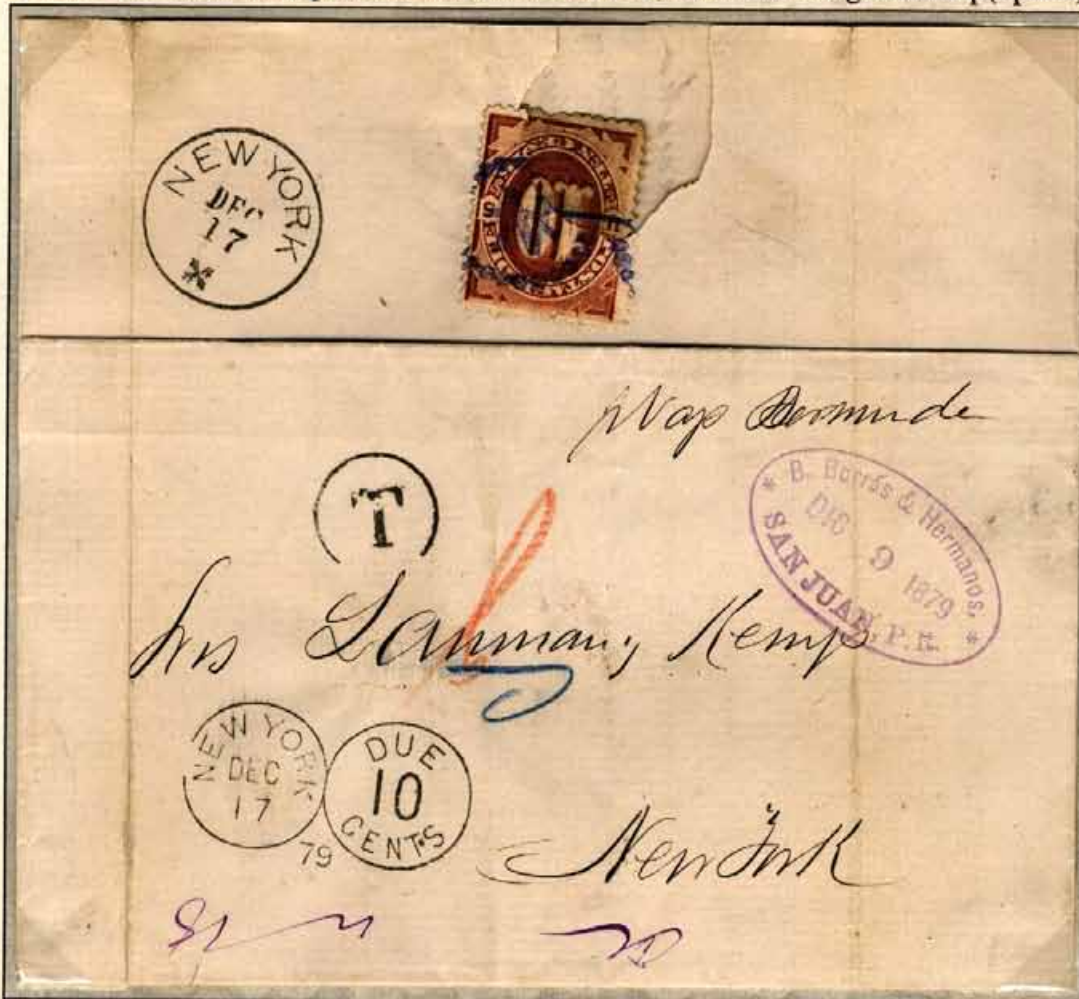 NEW YORK
DEC
17
p Vap Bermuda
T
B. Borrás & Hermanos,
DIC 9 1879
SAN JUAN, P.R.
Sres Lanman y Kemp
NEW YORK
DEC
17
79
DUE
10
CENTS
New York